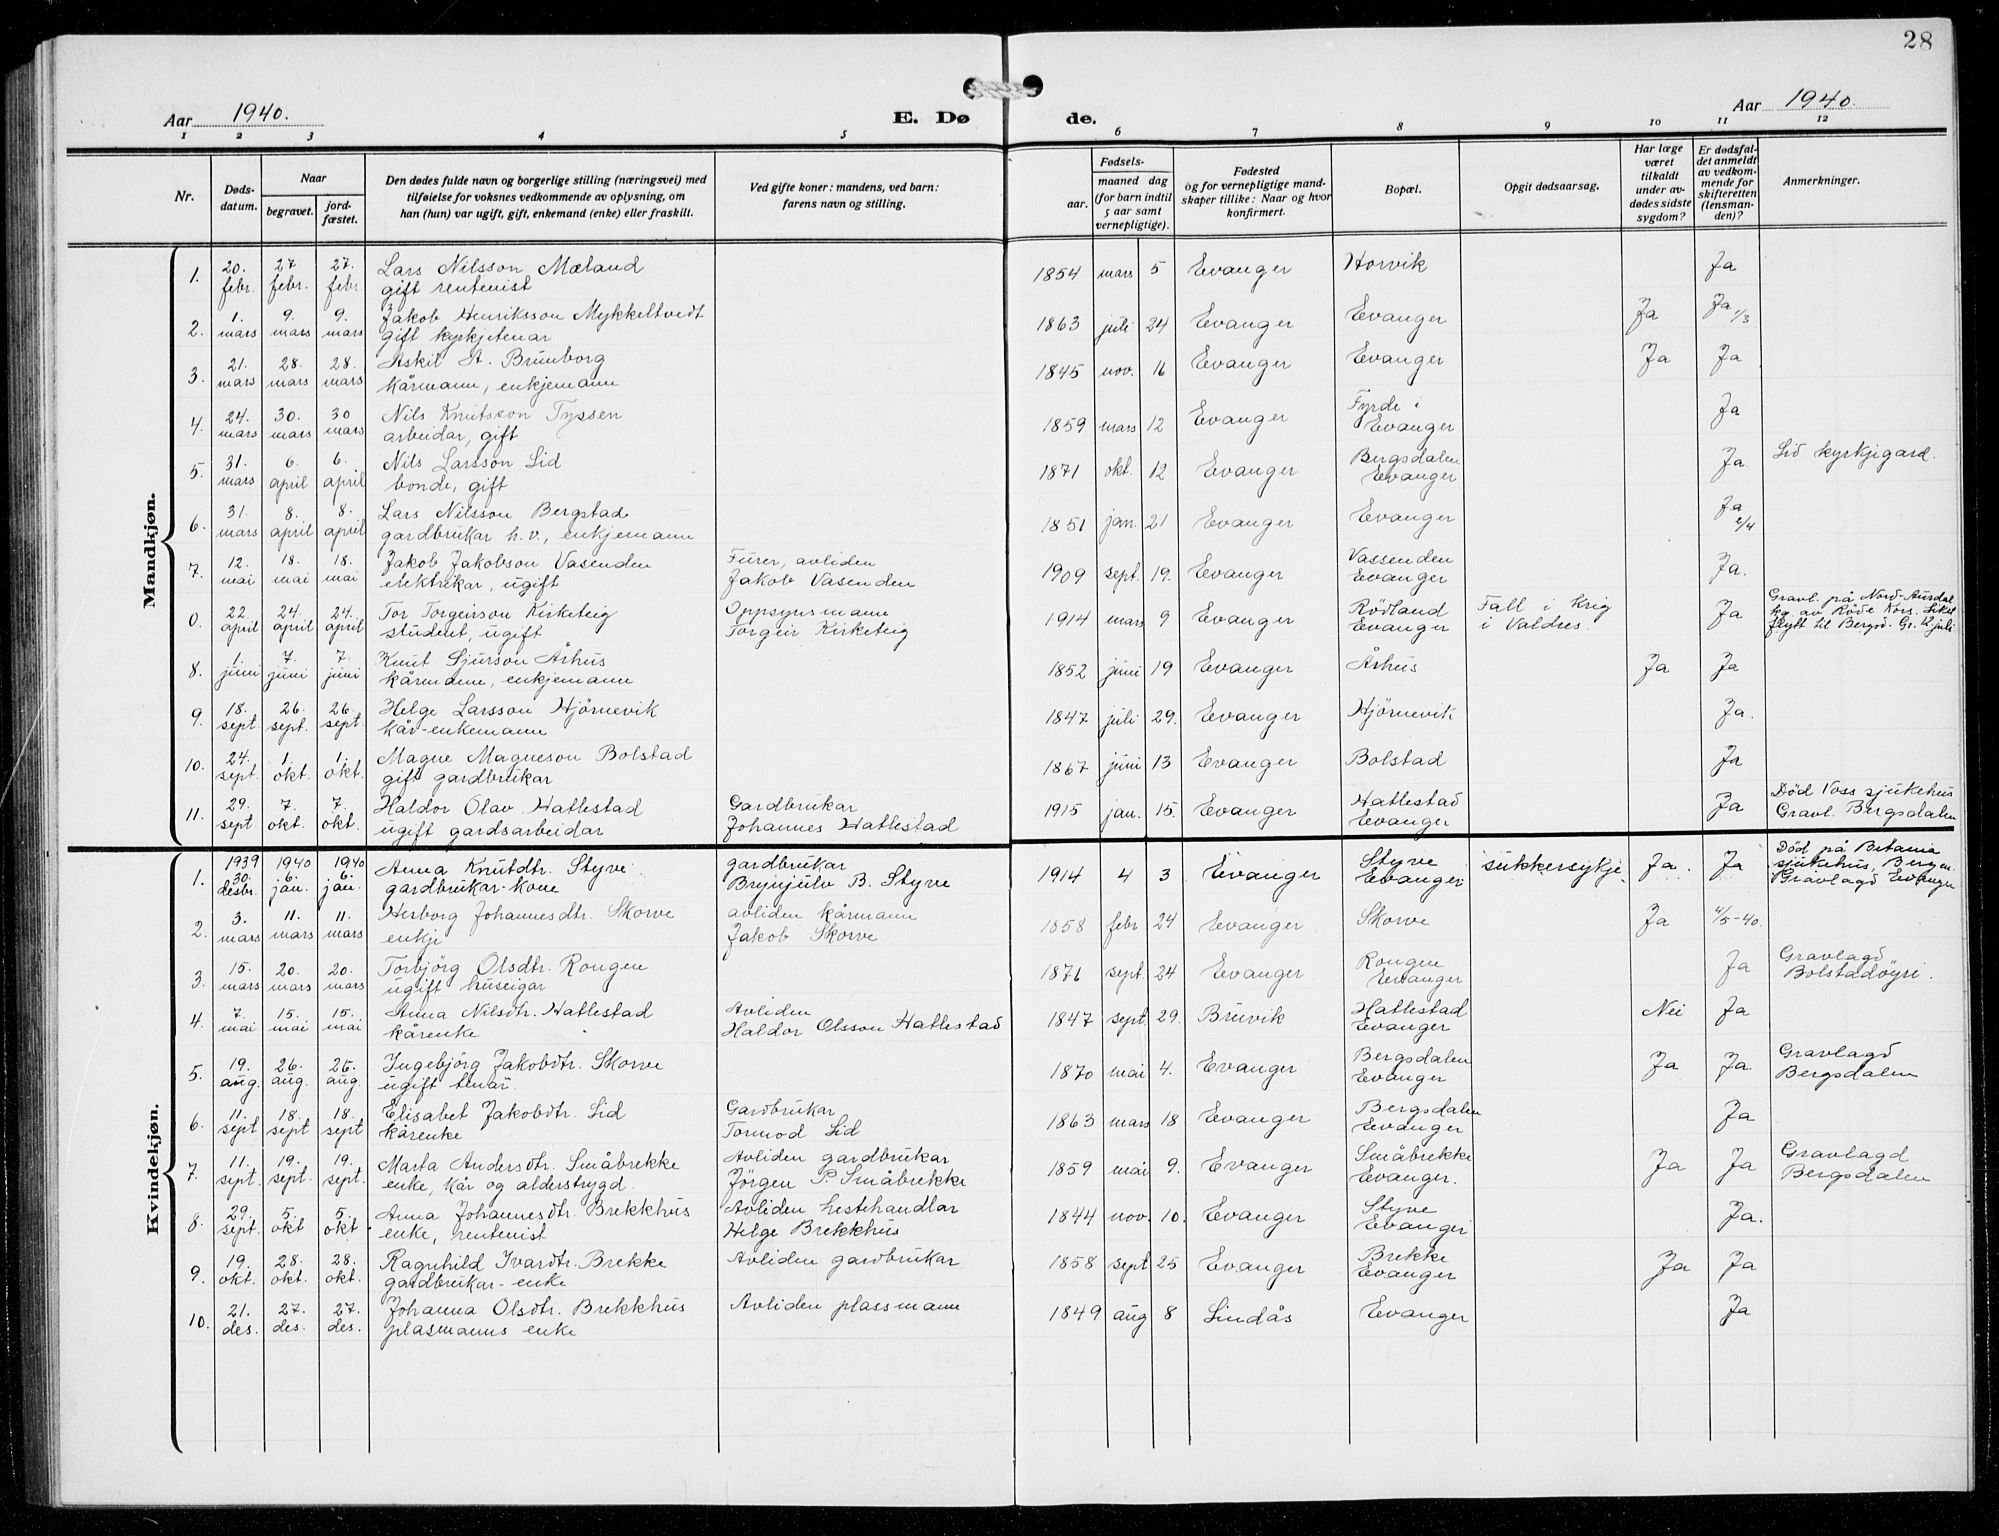 28
Aar 1940.
E. Dø de.
Aar 1940.
1 2 3 4 5 6 7 8 9 10 11 12
Nr.
Døds-
datum.
Naar
begravet.
jord-
fæstet.
Den dødes fulde navn og borgerlige stilling (næringsvei) med
tilføielse for voksnes vedkommende av oplysning, om
han (hun) var ugift, gift, enkemand (enke) eller fraskilt.
Ved gifte koner: mandens, ved barn:
farens navn og stilling.
Fødsels-
aar.
maaned dag
(for barn indtil
5 aar samt
vernepligtige).
Fødested
og for vernepligtige mand-
skaper tillike: Naar og hvor
konfirmert.
Bopæl.
Opgit dødsaarsag.
Har læge
været
tilkaldt
under av-
dødes sidste
sygdom?
Er dødsfal-
det anmeldt
av vedkom-
mende for
skifteretten
(lensman-
den)?
Anmerkninger.
Mandkjøn.
1. 20. febr. 27 febr. 27. febr. Lars Nilsson Mæland 1854 mars 5 Evanger Horvik Ja
gift rentenist
2. 1. mars 9. mars 9. mars Jakob Henriksson Mykkeltvedt 1863 juli 24 Evanger Evanger Ja Ja 1/3
gift kyrkjetenar
3. 21. mars 28. mars 28. mars Askil A. Brunborg 1845 nov. 16 Evanger Evanger Ja Ja
kårmann, enkjemann
4. 24. mars 30. mars 30 mars Nils Knutsson Tyssen 1859 mars 12 Evanger Fyrde i Ja
arbeidar, gift Evanger
5. 31. mars 6. april 6. april Nils Larsson Lid 1871 okt. 12 Evanger Bergsdalen Ja. Lid kyrkjigard.
bonde, gift Evanger
6. 31. mars 8. april 8. april Lars Nilsson Bergstad 1851 jan. 21 Evanger Evanger Ja 2/4
gardbrukar h.v., enkjemann
7. 12. mai 18. mai 18. mai Jakob Jakobson Vasenden Furer, avliden 1909 sept. 19. Evanger Vassenden Ja.
elektrikar, ugift Jakob Vasenden Evanger
0. 22. april 24. april 24. april Tor Torgeirson Kirketeig Oppsynsmann 1914 mars 9 Evanger Rödland Fall i Krig Ja Gravl. på Nord-Aurdal
student, ugift Torgeir Kirketeig Evanger i Valdres. kg. av Røde Kors. Liket
flytt til Bergsd. Gr. 12 juli
8. 1. juni 7. juni 7. juni Knut Sjurson Århus 1852 juni 19 Evanger Århus Ja Ja
kårmann, enkjemann
9. 18. sept. 26. sept. 26. sept. Helge Larsson Hjörnevik 1847 juli 29. Evanger Hjörnevik Ja.
kår-enkemann
10. 24. sept. 1. okt. 1. okt. Magne Magneson Bolstad 1867 juni 13 Evanger Bolstad Ja
gift gardbrukar
11. 29. sept 7. okt. 7. okt. Haldor Olav Hatlestad Gardbrukar 1915 jan. 15. Evanger Hatlestad Ja Död Voss sjukehus
ugift gardsarbeidar Johannes Hatlestad Evanger Gravl. Bergsdalen
Kvindekjøn.
1. 1939 30. desbr. 1940 6. jan. 1940 6. jan. Anna Knutdtr. Styve gardbrukar 1914 4 3 Evanger Styve sukkersykje Ja. Ja Död på Betania
gardbrukar-kone Brynjulv B. Styve Evanger sjukehus, Bergen.
Gravlagd Evanger
2. 3. mars 11. mars 11. mars Herborg Johannesdtr. Skorve avliden kårmann 1858 febr 24 Evanger Skorve Ja 4/5-40.
enkji Jakob Skorve
3. 15. mars 20. mars 20. mars Torbjörg Olsdtr. Rongen 1871 sept. 24 Evanger Rongen Ja Gravlagd
ugift huseigar Evanger Bolstadöyri.
4. 7. mai 15. mai 15. mai Anna Nilsdtr. Hatlestad Avliden 1847 sept. 29. Bruvik Hatlestad Nei Ja
kårenke Haldor Olsson Hatlestad Evanger
5. 19. aug. 26. aug. 25. aug. Ingebjörg Jakobdtr. Skorve 1870 mai 4. Evanger Bergsdalen Ja Ja. Gravlagd
ugift tenar. Evanger Bergsdalen
6. 11. sept 18. sept 18. sept Elisabet Jakobdtr. Lid Gardbrukar 1863 mars 18 Evanger Bergsdalen Ja
kårenke Tormod Lid Evanger
7. 11. sept. 19. sept. 19. sept. Marta Andersdtr. Småbrekke Avliden gardbrukar 1859 mai 9. Evanger Småbrekke Ja Ja Gravlagd
enke, kår og alderstrygd. Jörgen P. Småbrekke Evanger. Bergsdalen
8. 29. sept. 5. okt 5. okt Anna Johannesdtr. Brekkhus Avliden hestehandlar 1844 nov. 10. Evanger Styve Ja.
enke, rentenist Helge Brekkhus Evanger
9. 19. okt. 28. okt. 28. okt. Ragnhild Ivardtr. Brekke Avliden gardbrukar 1858 sept 25 Evanger Brekke Ja Ja
gardbrukar-enke Evanger
10. 21. des. 27. des. 27. des. Johanna Olsdtr. Brekkhus Avliden plassmann 1849 aug 8 Lindås Evanger Ja
plasmanns enke